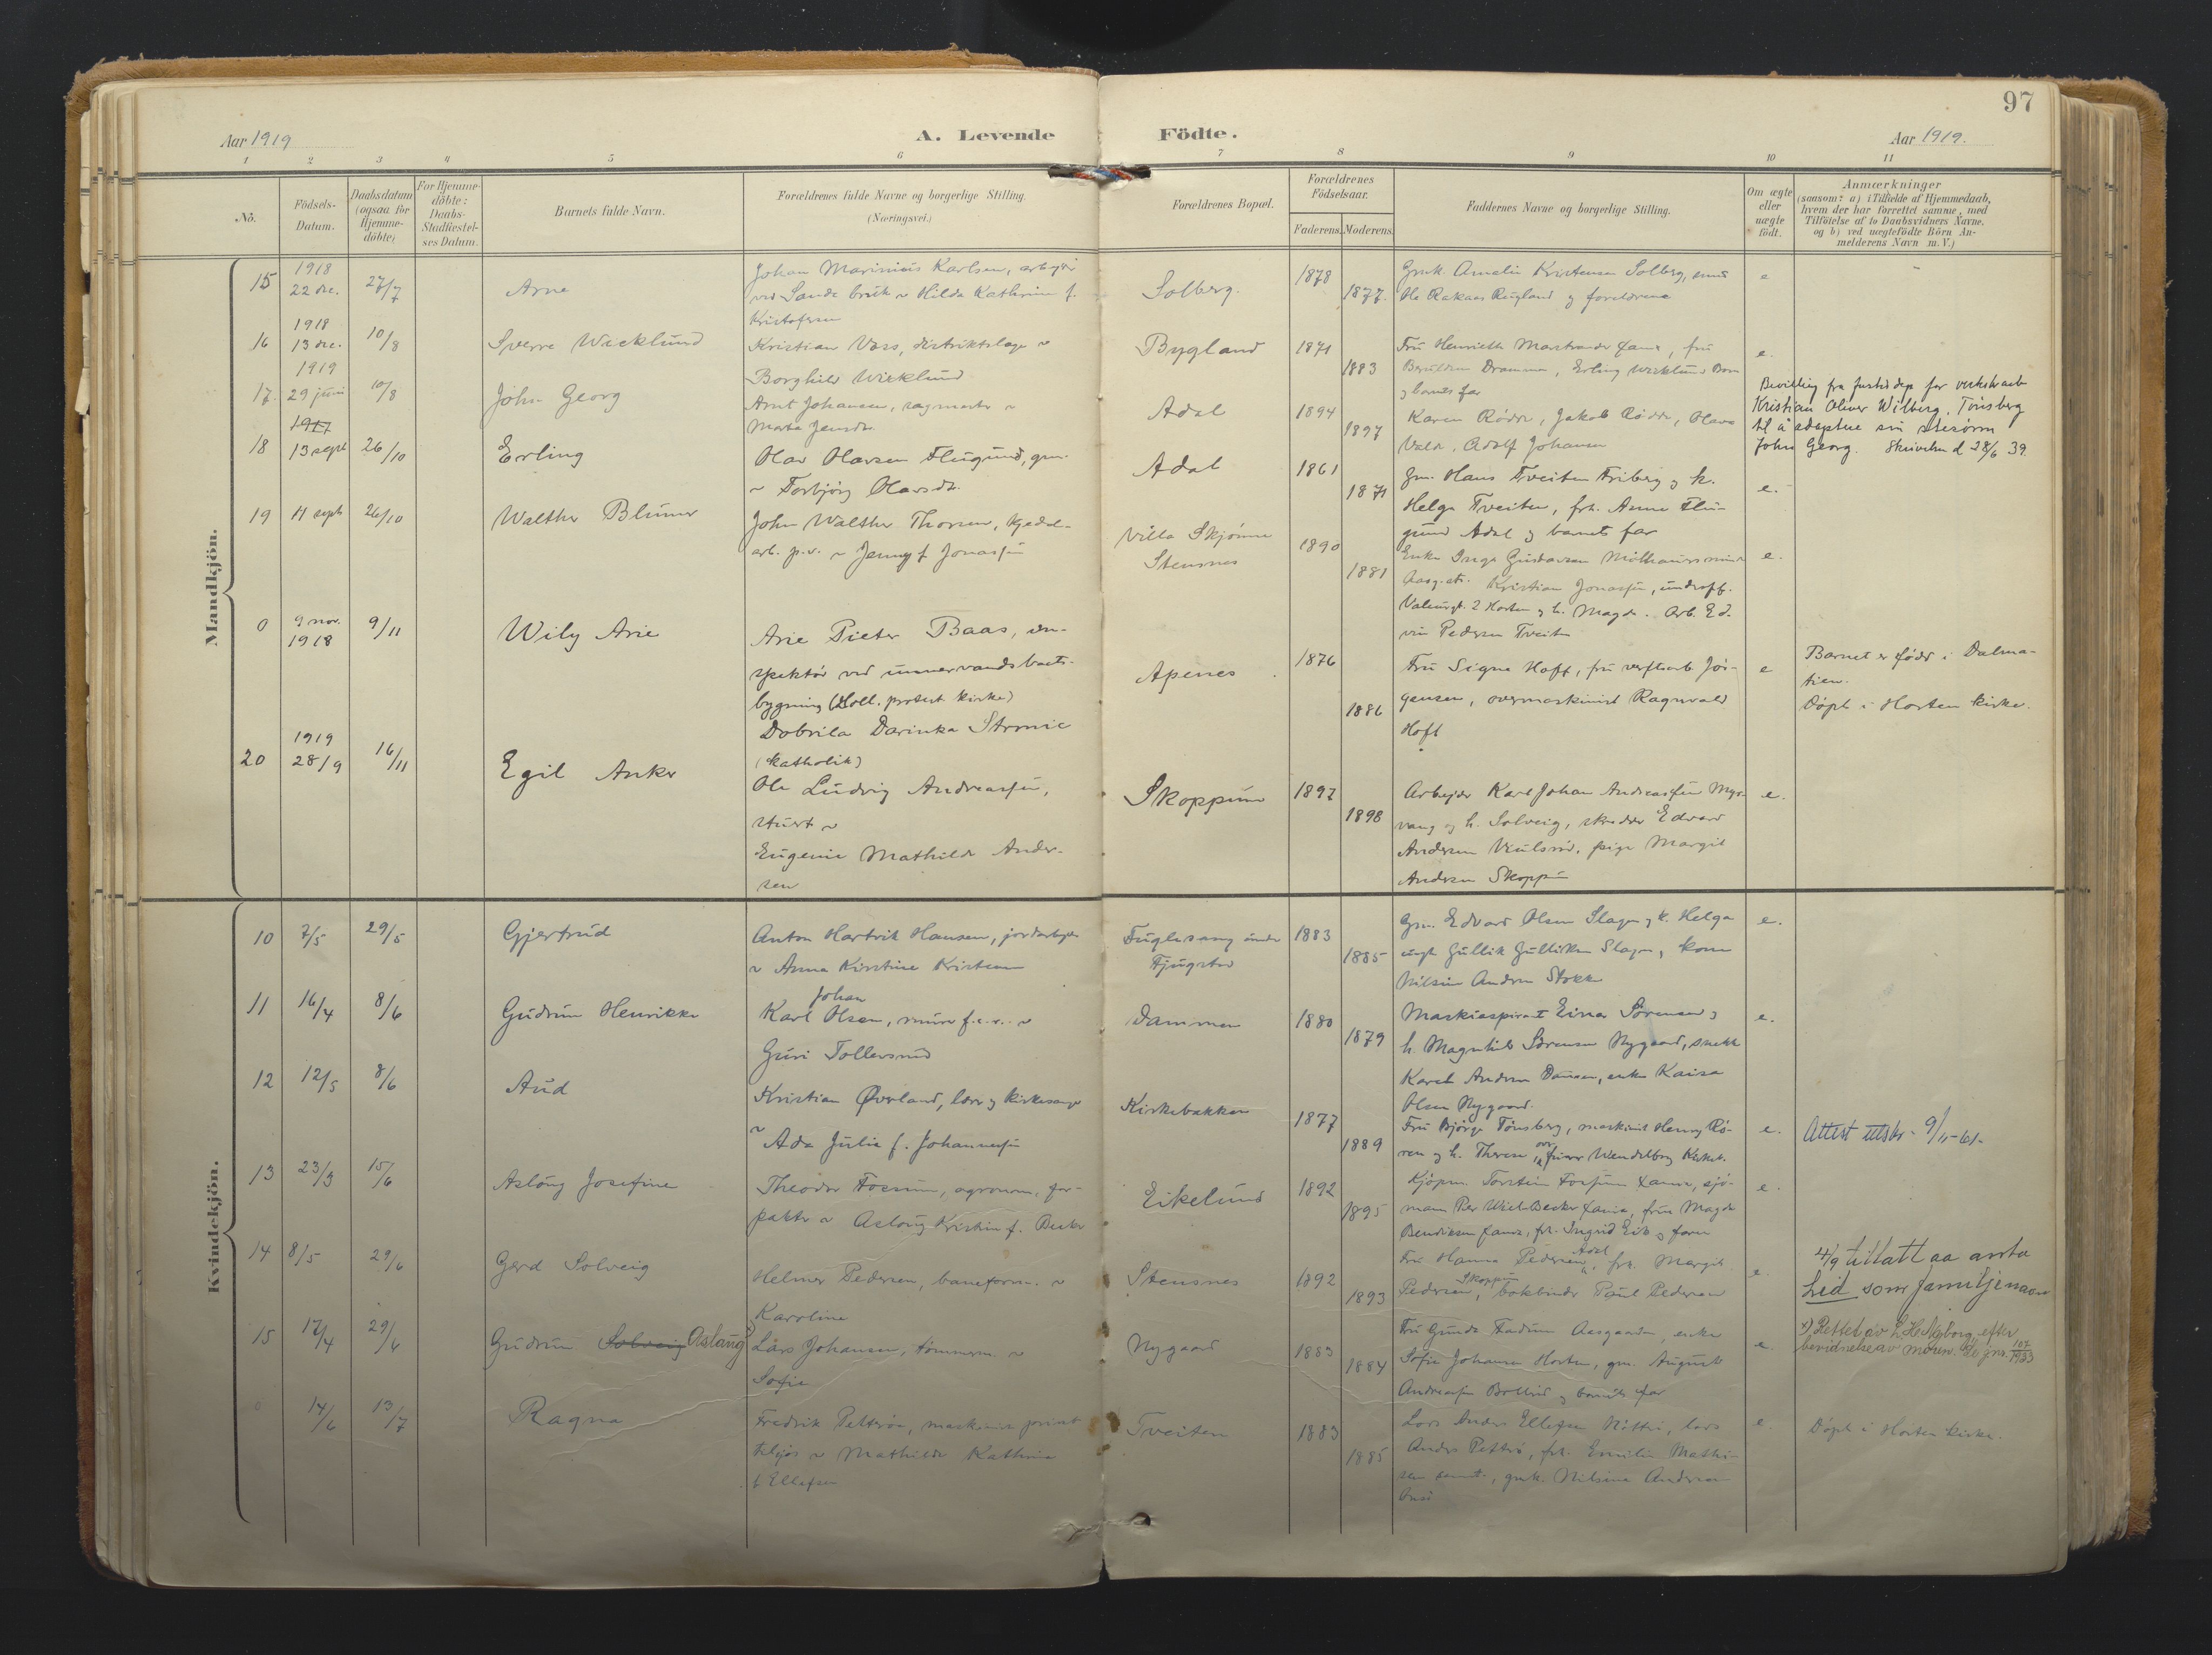 97
Aar 1919
A. Levende Födte.
Aar 1919.
1 2 3 4 5 6 7 8 9 10 11
No.
Födsels-
Datum.
Daabsdatum
(ogsaa for
Hjemme-
döbte)
For Hjemme-
döbte:
Daabs-
Stadfæstel-
ses Datum.
Barnets fulde Navn.
Forældrenes fulde Navne og borgerlige Stilling.
(Næringsvei.)
Forældrenes Bopæl.
Forældrenes
Födselsaar.
Faderens. Moderens.
Faddernes Navne og borgerlige Stilling.
Om ægte
eller
uægte
födt.
Anmærkninger
(saasom: a) i Tilfælde af Hjemmedaab,
hvem der har forrettet samme, med
Tilföielse af to Daabsvidners Navne.
og b) ved uægtefödte Börn An-
melderens Navn m. V.)
Mandkjön.
15
1918
22 dec.
27/7
Arne
Johan Marinius Karlsen, arbeider
ved Sande bruk ~ Hilda Kathrine f.
Kristofersen
Solberg.
1878
1877.
Gmk. Amalie Kristensen Solberg,
Ole Rakaas Rugland og forældrene
e
16
1918
13 dec.
10/8
Sverre Wicklund
Kristian Voss, distriktslæge ~
Borghild Wicklund
Bygland
1871
1883
Fru Henriette Marstrander
Drammen, Erling Wicklund
og barnets far
e.
17.
1919
29 juni
10/8
John Georg
Arnt Johansen, sagmester ~
Marta Jensdr.
Adal
1894
1897
Karen Rødde, Jakob Rødde, Olava
Vale, Adolf Johansen
Bevilling fra justisdep for verkstedarb
Kristian Oliver Wilberg, Tønsberg
til å adoptere sin stesønn
John Georg. Skrivelse d 28/6 39.
18
1917
13 sept
26/10
Erling
Olav Olavsen Flugund, gm.
~ Torbjørg Olavsdr.
Adal
1861
1871
Gm. Hans Tveiten Friberg og k.
Helga Tveiten, frk. Anna Flu-
gund Adal og barnets far
e.
19
11 sept
26/10
Walther Blumer
John Walther Thorsen, kjedel-
arb. p.v. ~ Jenny f. Jonassen
Villa Skjønne
Stensnes
1890
1881
Enke Inga Gustavsen
Kristian Jonassen, underoff.
2 Horten og h. Magda. Arb. Ed-
vin Pedersen Tveiten
e.
0
9 nov.
1918
9/11
Wily Arie
Arie Pieter Baas, in-
spektør ved undervandsbaats-
bygning (Holl. protest kirke)
Dobrila Darinka Strmic
(katholik)
Apenes
1876
1886
Fru Signe Hoft, fru verftsarb Jør-
gensen, overmaskinist Ragnvald
Hoft
e
Barnet er født i Dalma-
tien.
Døpt i Horten kirke.
20
1919
28/9
16/11
Egil Anker
Ole Ludvig Andreassen,
stuert ~
Eugenie Mathilde Ander-
sen
Skoppum
1897
1898
Arbeider Karl Johan Andreassen Myr-
vang og h. Solveig, skredder Edvard
Andersen, pige Margit
Andersen Skoppum
e.
Kvindekjön.
10
7/5
29/5
Gjertrud
Anton Hartvik Hansen, jordarbeider
~ Anna Kirstine Kristensen
Fuglesang under
Fjugstad
1883
1885
Gm. Edvard Olsen Slagen og k. Helga
ungk Gullik Gulliksen Slagen, kone
Nilsine Andersen Stokke
e.
11
16/4
8/6
Gudrun Henrikke
Johan
Karl Olsen, murer f.c.v. ~
Guri Tollevsrud
Dammen
1880
1879
Maskinaspirant Einar Sørensen og
h. Magnhild Sørensen Nygaard, snekk
Karel Andersen Dammen, enke Kaisa
Olsen Nygaard.
e.
12
12/5
8/6
Aud
Kristian Øverland, lærer og kirkesanger
~ Ada Julie f. Johannessen
Kirkebakken
1877
1889
Fru Bjørge Tønsberg, maskinist Henry Rø-
ren og h. Therese, frøken Wendelborg Kirkeb.
e.
Attest utst. 9/11-61.
13
23/3
15/6
Aslaug Josefine
Theodor Fossum, agronom, for-
pakter ~ Aslaug Kristine f. Becker
Eikelund
1892
1895
Kjøpm. Torstein Fossum Larvik, sjø-
mann Per Wiel Becker, fru Magda
Bendiksen, frk. Ingrid Eik og faren
e.
14
8/5
29/6
Gerd Solveig
Helmer Pedersen, baneform. ~
Karoline
Stensnes
1892
1893
Fru Hanna Pedersen Adal, frk. Margit
Pedersen Skoppum, bokbinder Paul Pedersen
e.
4/9 tillatt aa anta
Lid som familjenavn
15
17/4
29/6
Gudrun Solveig Aslaug x)
Lars Johansen, tømmerm. ~
Sofie
Nygaard
1883
1884
Fru Gunda Fadum Aasgaarden, enke
Sofie Johansen Horten, gm. August
Andreassen og barnets far
e.
x) Rettet av L.H. Nyborg efter
bevidnelse av moren. Se jnr. 107/1933
0
14/6
13/7
Ragna
Fredrik Pettersøn, maskinist privat
tilsjøs ~ Mathilde Kathrine
f. Ellefsen
Tveiten
1883
1885
Lars Anders Ellefsen Nøtterø, lods
Anders Pettersø, frk. Emilie Mathi-
sen samst., gmk. Nilsine Andersen
e
Døpt i Horten kirke.